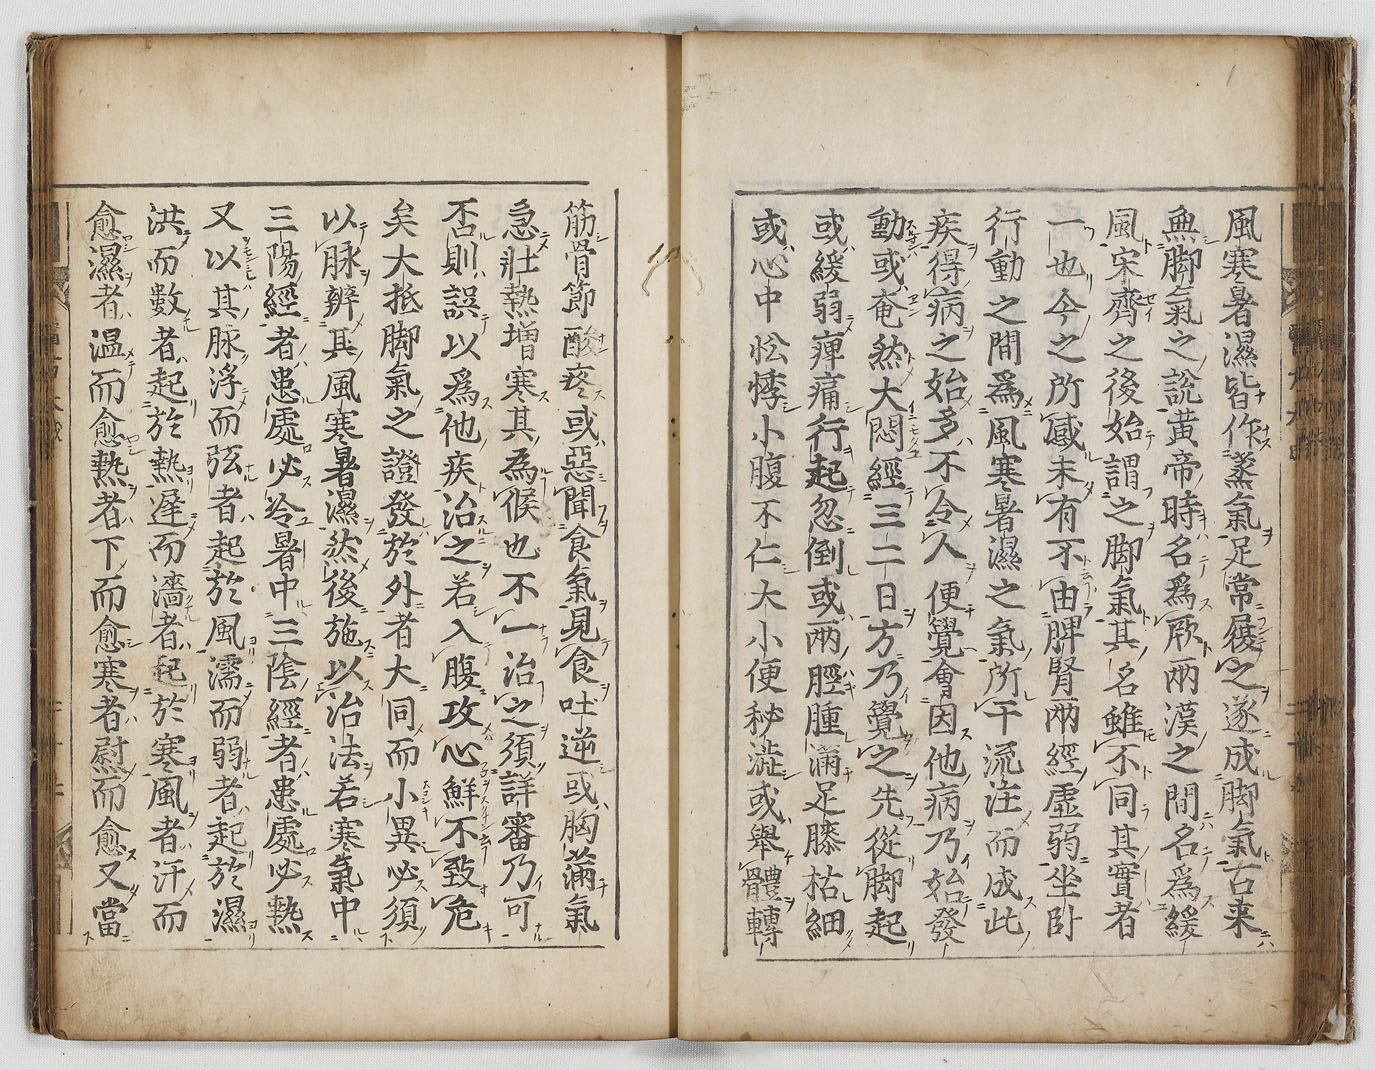 風寒暑濕皆作蒸氣足常履之遂成脚氣古来
無脚氣之說黄帝時名爲厥兩漢之間名爲緩
風宋齊之後始謂之脚氣其名雖不同其實者
一也今之所感未有不由脾腎兩經虚弱坐卧
行動之間爲風寒暑濕之氣所干流注而成此
疾得病之始多不令人便覺會因他病乃始發
動或奄然大悶經三二日方乃覺之先從脚起
或緩弱痺痛行起忽倒或兩脛腫滿足膝枯細
或心中忪悸小腹不仁大小便秘澁或舉體轉
筋骨節酸疼或惡聞食氣見食吐逆或胸滿氣
急壮熱増寒其為候也不一治之須詳審乃可
否則誤以爲他疾治之若入腹攻心鮮不致危
矣大抵脚氣之證發於外者大同而小異必須
以脉辨其風寒暑濕然後施以治法若寒氣中
三陽經者患處必冷暑中三陰經者患處必熱
又以其脉浮而弦者起於風濡而弱者起於濕
洪而數者起於熱遲而濇者起於寒風者汗而
愈濕者温而愈熱者下而愈寒者慰而愈又當